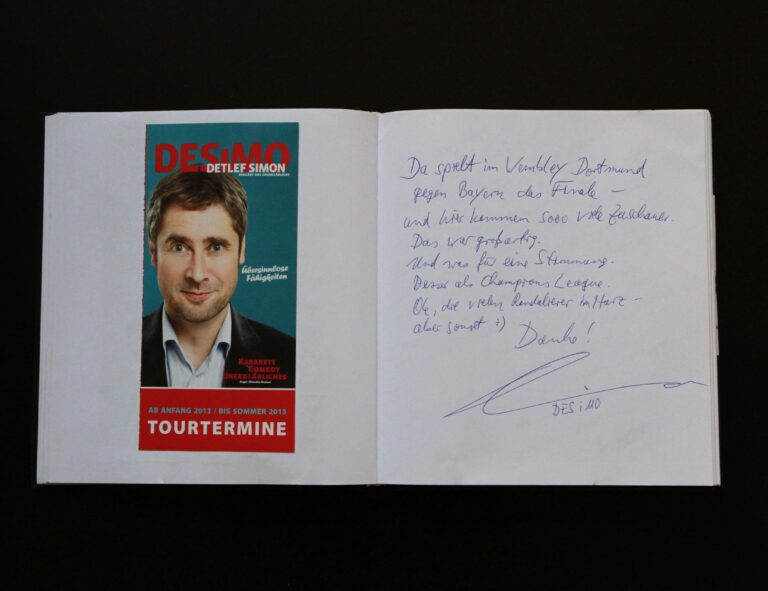 DESiMO
DETLEF SIMON
ERKLÄRT DAS UNERKLÄRLICHE
Übersinnlose
Fähigkeiten
KABARETT
COMEDY
UNERKLÄRLICHES
AB ANFANG 2013 / BIS SOMMER 2013
TOURTERMINE
Da spielt im Wembley Dortmund
gegen Bayern das Finale –
und hier kommen sooo viele Zuschauer.
Das war großartig.
Und was für eine Stimmung.
Besser als Champions League.
Ok, die vielen Randalierer im Harz –
aber sonst :)
Danke!
DESiMO